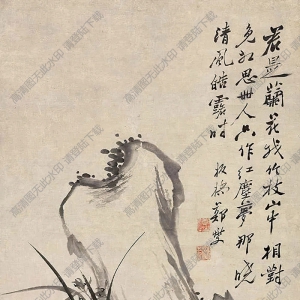 君是蘭花我竹枝山中相對
免相思世人只作紅塵夢那曉
清風皓露時
板橋鄭燮